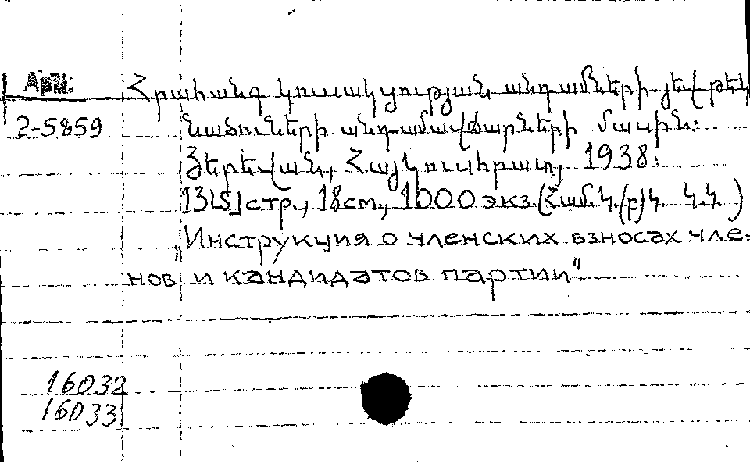 Арм.
Հրահանգ կուսակցության անդամների յեվ թեկ
2-5859 նածուների անդամավճարների մասին:
Յերեվան, Հայկուսհրատ, 1938:
13[5] стр., 18см, 1000 экз. (Համ.Կ.(բ)Կ. Կ.Կ.)
„Инструкция о членских взносах чле-
нов и кандидатов партии"
16032
16033